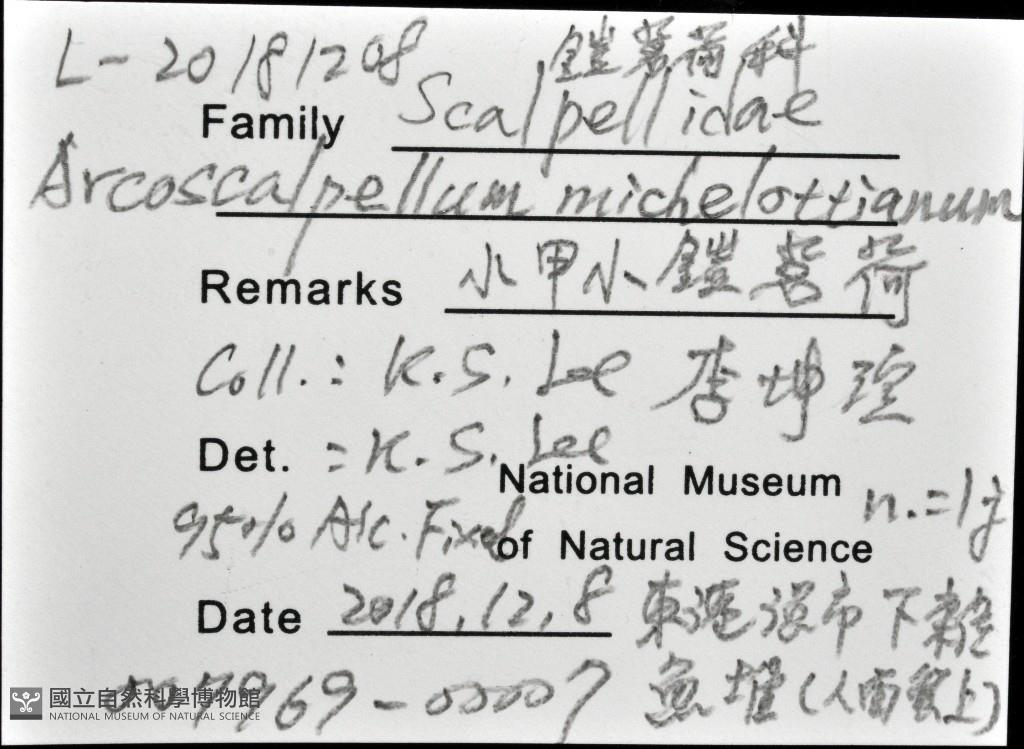 L-20181208 鎧茗荷科
Family Scalpellidae
Arcoscalpellum michelottianum
Remarks 小甲小鎧茗荷
Coll.: K.S. Lee 李坤瑄
Det. : K.S. Lee
National Museum n.=1
95% Alc. Fixed of Natural Science
Date 2018.12.8 東港漁市下雜
7969-00007 魚堆(人面蟹上)
國立自然科學博物館
NATIONAL MUSEUM OF NATURAL SCIENCE